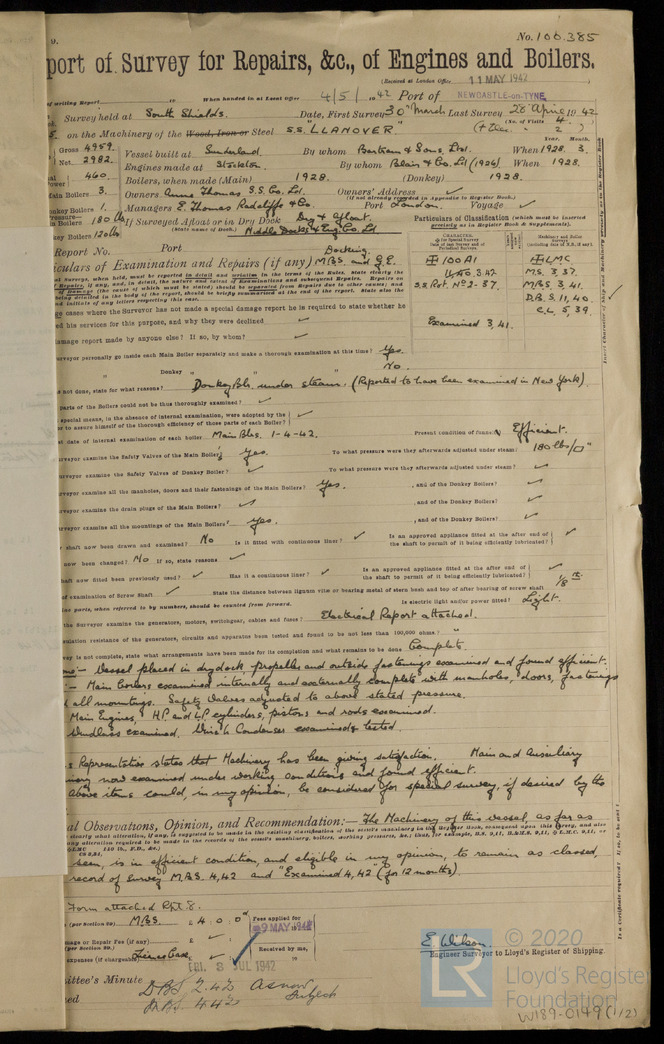 No. 100.385
port of Survey for Repairs, &c., of Engines and Boilers.
(Received at London Office 11 MAY 1942
of writing Report When handed in at Local Office 4/5/1942 Port of NEWCASTLE-on-TYNE
Survey held at South Shields. Date, First Survey 30th March Last Survey 28 April 1942
(No. of Visits 4.
on the Machinery of the Wood, Iron or Steel S.S. "LLANOVER"
Gross 4959. Vessel built at Sunderland By whom Bartram & Sons Ltd. When 1928. 3.
Net 2982. Engines made at Stockton. By whom Blair & Co. Ltd (1926) When 1928.
460. Boilers, when made (Main) 1928. (Donkey) 1928.
Main Boilers 3. Owners Evan Thomas S.S. Co. Ltd. Owners' Address
(if not already recorded in Appendix to Register Book.)
Donkey Boilers 1. Managers E. Thomas Radcliffe & Co. Port London. Voyage
Main Boilers 180 lbs If Surveyed Afloat or in Dry Dock Dry & Afloat.
(State name of Dock.) Middle Docks & Eng. Co. Ltd
Donkey Boilers 120 lbs
Particulars of Classification (which must be inserted precisely as in Register Book & Supplements).
100A1 LMC
3.42 M.S. 3,37.
S.S. Rot. No 2-37. MBS 3,41.
D.B.S. 11,40.
C.L. 5,39.
Examined 3,41.
Report No. Port
Docking,
iculars of Examination and Repairs (if any) MBS. and G.E.
go cases where the Surveyor has not made a special damage report he is required to state whether he
ed his services for this purpose, and why they were declined
amage report made by anyone else? If so, by whom?
urveyor personally go inside each Main Boiler separately and make a thorough examination at this time? Yes.
" Donkey " " " No.
not done, state for what reasons? Donkey Blr. under steam. (Reported to have been examined in New York).
parts of the Boilers could not be thus thoroughly examined?
special means, in the absence of internal examination, were adopted by the
or to assure himself of the thorough efficiency of those parts of each Boiler?
st date of internal examination of each boiler Main Blrs. 1-4-42. Present condition of funnel(s) Efficient.
urveyor examine the Safety Valves of the Main Boiler? Yes. To what pressure were they afterwards adjusted under steam? 180 lbs/□"
urveyor examine the Safety Valves of Donkey Boiler? To what pressure were they afterwards adjusted under steam?
urveyor examine all the manholes, doors and their fastenings of the Main Boilers? Yes. , and of the Donkey Boilers?
urveyor examine the drain plugs of the Main Boilers? , and of the Donkey Boilers?
urveyor examine all the mountings of the Main Boilers? Yes. , and of the Donkey Boilers?
shaft now been drawn and examined? No Is it fitted with continuous liner? Is an approved appliance fitted at the after end of
the shaft to permit of it being efficiently lubricated?
now been changed? No If so, state reasons
haft now fitted been previously used? Has it a continuous liner? Is an approved appliance fitted at the after end of
the shaft to permit of it being efficiently lubricated?
of examination of Screw Shaft State the distance between lignum vitæ or bearing metal of stern bush and top of after bearing of screw shaft 1/8
parts, when referred to by numbers, should be counted from forward. Is electric light and/or power fitted? Light.
the Surveyor examine the generators, motors, switchgear, cables and fuses? Electrical Report attached.
sulation resistance of the generators, circuits and apparatus been tested and found to be not less than 100,000 ohms? "
vey is not complete, state what arrangements have been made for its completion and what remains to be done Complete
Vessel placed in drydock, propeller and outside fastenings examined and found efficient.
Main boilers examined internally and externally complete with manholes, doors, fastenings
all mountings. Safety Valves adjusted to above stated pressure.
Main Engines, H.P. and L.P. cylinders, pistons and rods examined.
Windlass examined. Winch Condenser examined & tested.
Representative states that Machinery has been giving satisfaction. Main and Auxiliary
inery now examined under working conditions and found efficient.
above items could, in my opinion, be considered for special survey, if desired by the
al Observations, Opinion, and Recommendation:— The Machinery of this vessel, as far as
seen, is in efficient condition, and eligible in my opinion, to remain as classed,
record of survey M.B.S. 4,42 and "Examined 4,42" (for 12 months).
Form attached Rpt. 8.
(per Section 29) MBS. £ 4 : 0 : 0 Fees applied for
9 MAY 1942
mage or Repair Fee (if any) Received by me,
expenses (if chargeable)
E Wilson.
Engineer Surveyor to Lloyd's Register of Shipping.
FRI. 3 JUL 1942
ittee's Minute DBS 2.42 As now
ned MBS 4.42 Subject
© 2020
LR
Lloyd's Register
Foundation
W189-0149 (1/2)